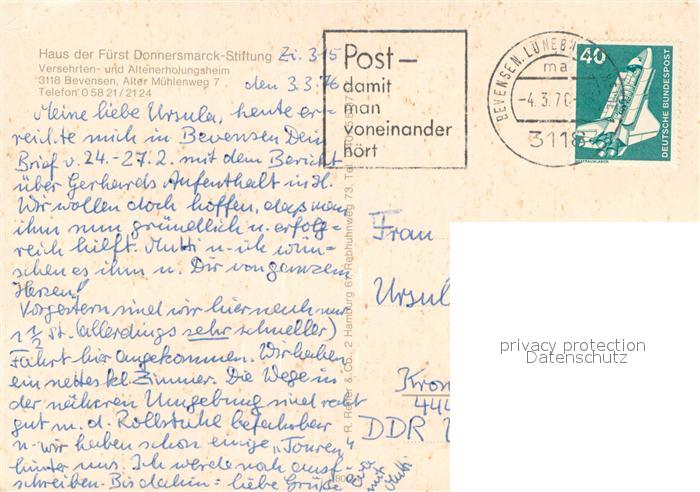 Haus der Fürst Donnersmarck-Stiftung Zi. 315
Versehrten- und Altenerholungsheim
3118 Bevensen, Alter Mühlenweg 7
Telefon 0 58 21 / 21 24
den 3.3.76
Meine liebe Ursula, heute er-
reichte mich in Bevensen Dein
Brief v. 24.-27.2. mit dem Bericht
über Gerhards Aufenthalt in H.
Wir wollen doch hoffen, dass man
ihm nun gründlich u. erfolg-
reich hilft. Mutti u. ich wün-
schen es ihm u. Dir von ganzem
Herzen!
Vorgestern sind wir hier nach nur
1 1/2 St. (allerdings sehr schneller)
Fahrt hier angekommen. Wir haben
ein nettes kl. Zimmer. Die Wege in
der näheren Umgebung sind recht
gut m. d. Rollstuhl befahrbar
u. wir haben schon einige „Touren"
hinter uns. Ich werde noch ausf.
schreiben. Bis dahin: liebe Grüße
Mutti
Post-
damit
man
voneinander
hört
BEVENSEN, LÜNEB
-4.3.76
3118
40
DEUTSCHE BUNDESPOST
Frau
Ursul
Kron
444
DDR
R. Reher & Co., 2 Hamburg 61, Rebhuhnweg 73, Tel.
privacy protection
Datenschutz